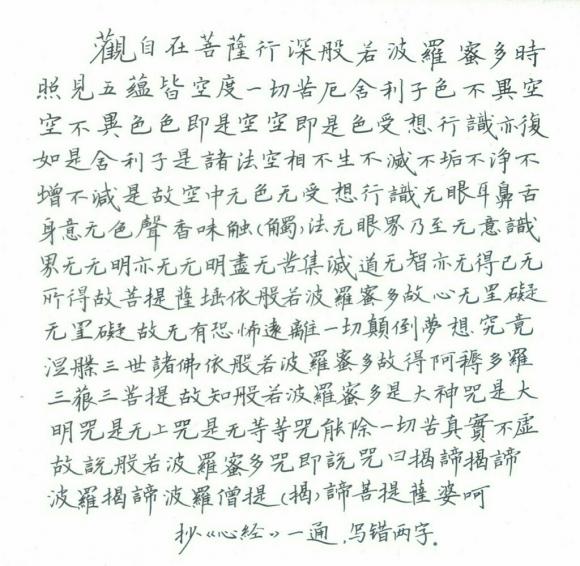 觀自在菩薩行深般若波羅蜜多時
照見五蘊皆空度一切苦厄舍利子色不異空
空不異色色即是空空即是色受想行識亦復
如是舍利子是諸法空相不生不滅不垢不净不
增不減是故空中无色无受想行識无眼耳鼻舌
身意无色聲香味触(觸)法无眼界乃至无意識
界无无明亦无无明盡无苦集滅道无智亦无得已无
所得故菩提薩埵依般若波羅蜜多故心无罣礙
无罣礙故无有恐怖遠離一切顛倒夢想究竟
涅槃三世諸佛依般若波羅蜜多故得阿耨多羅
三藐三菩提故知般若波羅蜜多是大神咒是大
明咒是无上咒是无等等咒能除一切苦真實不虛
故說般若波羅蜜多咒即說咒曰揭諦揭諦
波羅揭諦波羅僧提(揭)諦菩提薩婆呵
抄《心経》一通,写错两字.